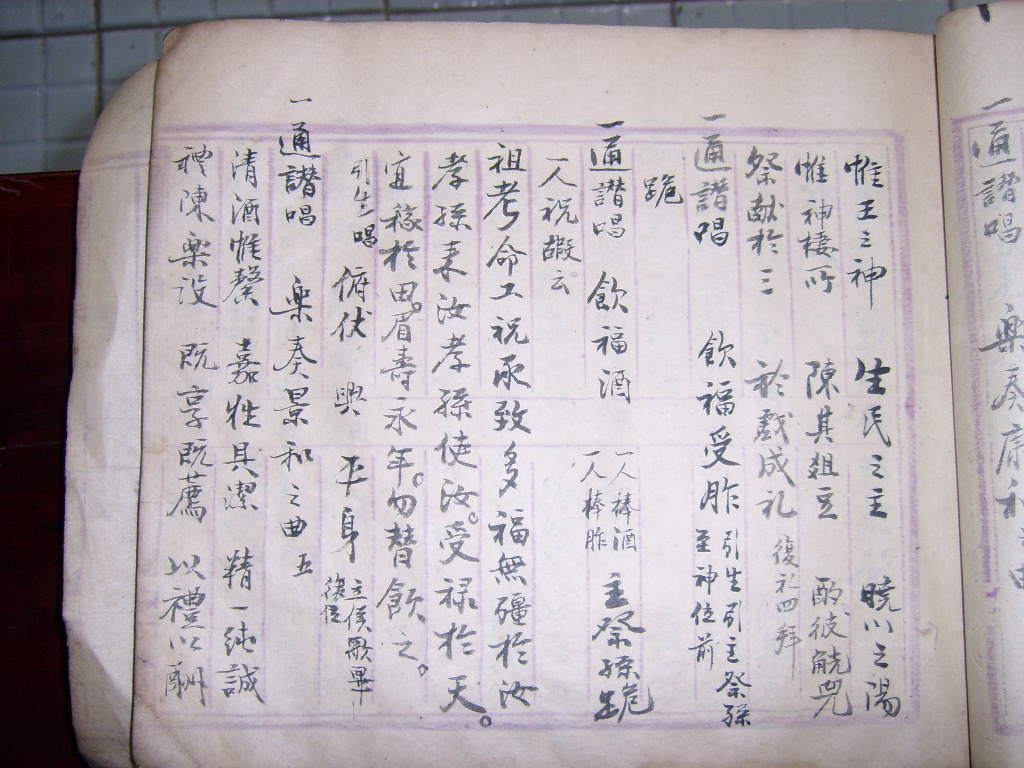 一通讃唱 樂奏康和
惟王之神 生民之主 曉川之陽
惟神棲所 陳其俎豆 酌彼觥兕
祭献於三 於戲成礼 復礼四拜
一通讃唱 飲福受胙 引生引主祭孫
至神位前
跪
一通讃唱 飲福酒 一人棒酒
一人棒胙 主祭孫跪
一人祝嘏云
祖考命工祝承致多福無疆於汝
孝孫来汝孝孫使汝受禄於天。
宜稼於田。眉壽永年。勿替飲之。
引生唱 俯伏 興 平身 立俟歌畢
復位
一通讃唱 樂奏景和之曲 五
清酒惟馨 嘉牲具潔 精一純誠
禮陳樂設 既享既薦 以禮以酬